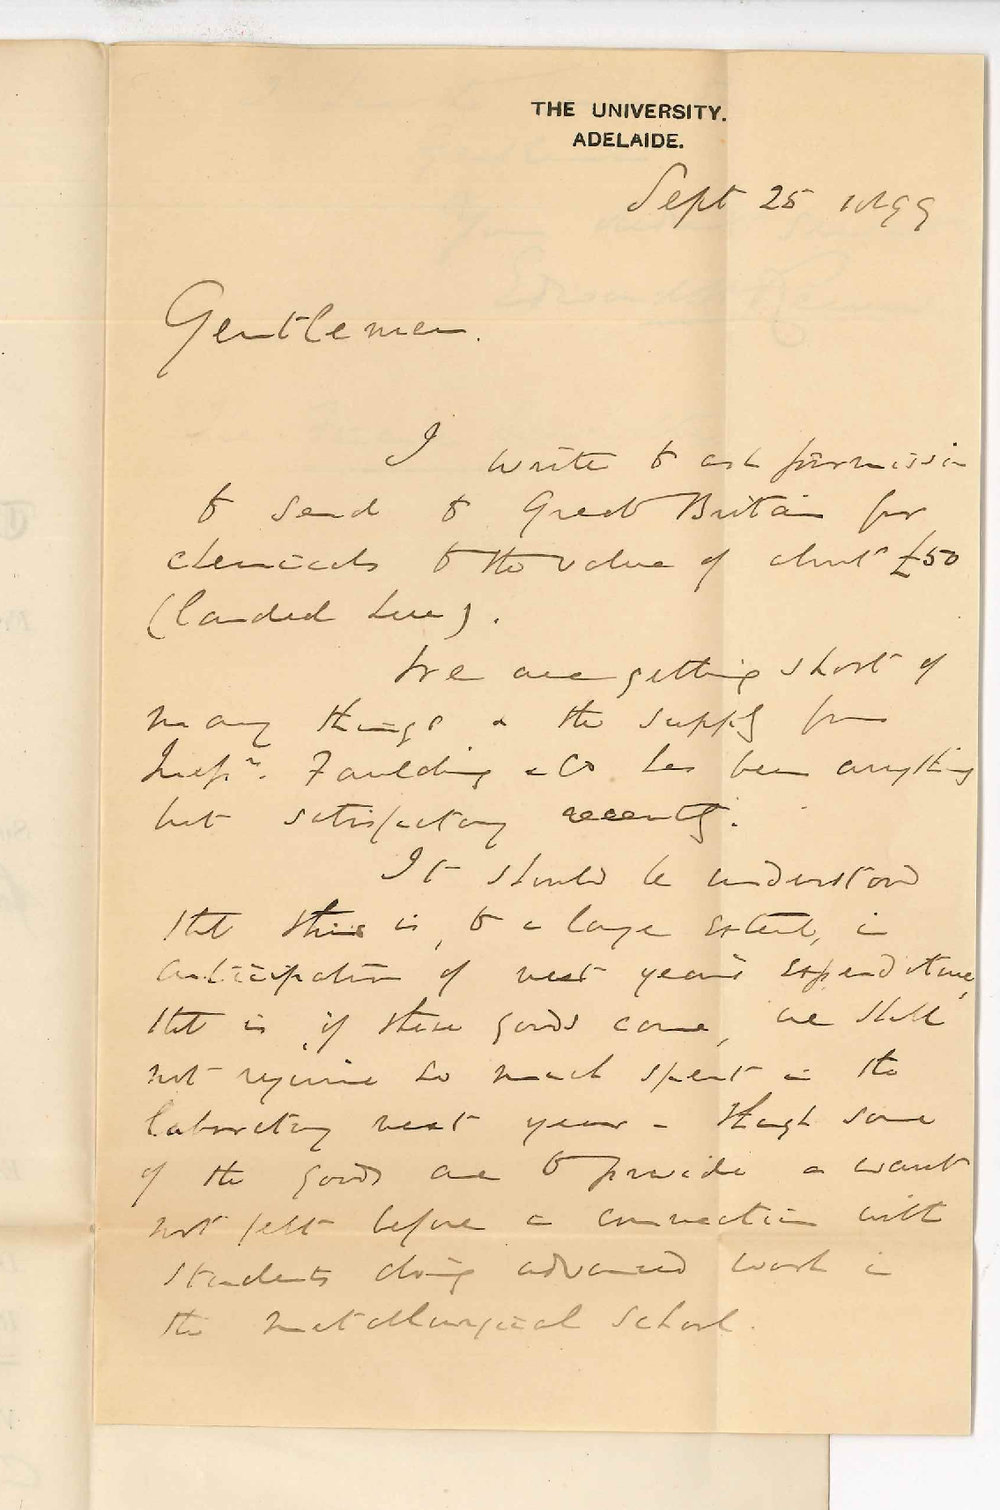 THE UNIVERSITY.
ADELAIDE.
Sept 25 1899
Gentlemen.
I write to ask permission
to send to Great Britain for
chemicals to the value of about £50
(landed here).
We are getting short of
many things & the supply from
Messrs. Faulding & Co has been anything
but satisfactory recently.
It should be understood
that this is, to a large extent, in
anticipation of next year's expenditure,
that is, if these goods come, we shall
not require so much spent in the
laboratory next year - though some
of the goods are to provide a want
not felt before in connection with
students doing advanced work in
the metallurgical school.